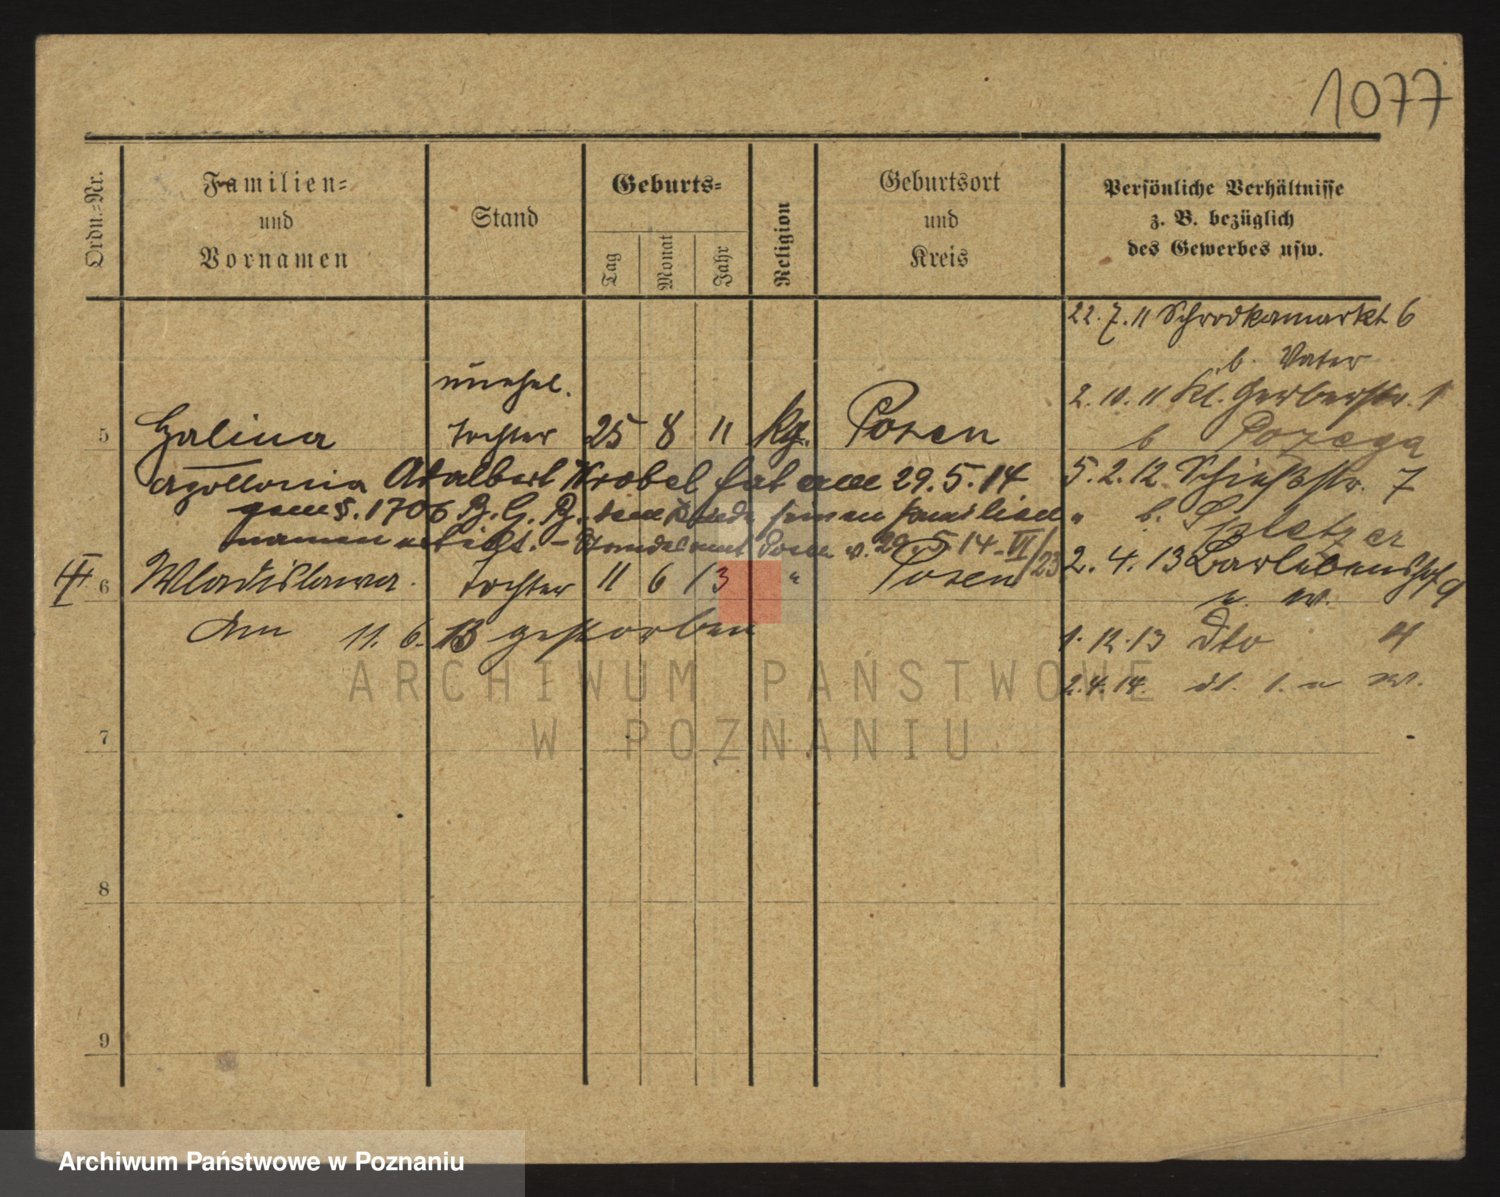 1077
Ordn.-Nr.
Familien-
und
Vornamen
Stand
Geburts-
Tag
Monat
Jahr
Religion
Geburtsort
und
Kreis
Persönliche Verhältnisse
z. B. bezüglich
des Gewerbes usw.
22. 7. 11 Schrodkamarkt 6
b. Vater
2. 10. 11 Kl. Gerberstr. 1
unehel.
5 Halina Tochter 25 8 11 Kg. Posen
b
Apollonia Adalbert Wrobel hat am 29. 5. 14
5. 2. 12. Schießstr. 7
gem §. 1706 B. G. B. dem Kinde seinen Familien
b.
namen erteilt. - Standesamt Posen v. 29. 5 14 - VI/23
6 Wladislawa. Tochter 11 6 13 " Posen
2. 4. 13 Barlebenshof 9
Am 11. 6. 13 gestorben
1. 12. 13 Dto
2. 4. 14.
7
8
9
ARCHIWUM PAŃSTWOWE
W POZNANIU
Archiwum Państwowe w Poznaniu